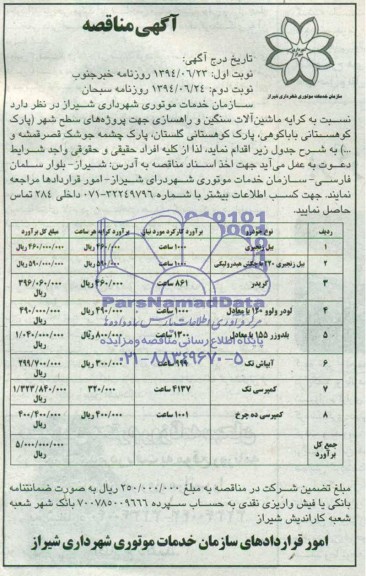 آگهی مناقصه
سازمان خدمات موتوری شهرداری شیراز
تاریخ درج آگهی:
نوبت اول: ۱۳۹۴/۰۶/۲۳ روزنامه خبرجنوب
نوبت دوم: ۱۳۹۴/۰۶/۲۴ روزنامه سبحان
سازمان خدمات موتوری شهرداری شیراز در نظر دارد
نسبت به کرایه ماشین‌آلات سنگین و راهسازی جهت پروژه‌های سطح شهر (پارک
کوهستانی باباکوهی، پارک کوهستانی گلستان، پارک چشمه جوشک قصرقمشه و
...) به شرح جدول زیر اقدام نماید، لذا از کلیه افراد حقیقی و حقوقی واجد شرایط
دعوت به عمل می‌آید جهت اخذ اسناد مناقصه به آدرس: شیراز- بلوار سلمان
فارسی- سازمان خدمات موتوری شهردرای شیراز- امور قراردادها مراجعه
نمایند. جهت کسب اطلاعات بیشتر با شماره ۳۲۲۴۹۷۹۶-۰۷۱ داخلی ۲۸۴ تماس
حاصل نمایید.
ردیف نوع خودرو برآورد کارکرد مورد نیاز برآورد کرایه هر ساعت مبلغ کل برآورد
۱ بیل زنجیری ۱۰۰۰ ساعت ۴۶۰/۰۰۰ ریال ۴۶۰/۰۰۰/۰۰۰ ریال
۲ بیل زنجیری ۲۲۰ با چکش هیدرولیکی ۱۰۰۰ ساعت ۵۹۰/۰۰۰ ریال ۵۹۰/۰۰۰/۰۰۰ ریال
۳ گریدر ۸۶۱ ساعت ۴۶۰/۰۰۰ ریال ۳۹۶/۰۶۰/۰۰۰ ریال
۴ لودر ولوو ۱۲۰ یا معادل ۱۰۰۰ ساعت ۴۹۰/۰۰۰ ریال ۴۹۰/۰۰۰/۰۰۰ ریال
۵ بلدوزر ۱۵۵ یا معادل ۱۳۰۰ ساعت ۸۰۰/۰۰۰ ریال ۱/۰۴۰/۰۰۰/۰۰۰ ریال
۶ آبپاش تک ۹۹۹ ساعت ۳۰۰/۰۰۰ ریال ۲۹۹/۷۰۰/۰۰۰ ریال
۷ کمپرسی تک ۴۱۳۷ ساعت ۳۲۰/۰۰۰ ۱/۳۲۳/۸۴۰/۰۰۰ ریال
۸ کمپرسی ده چرخ ۱۰۰۱ ساعت ۴۰۰/۰۰۰ ریال ۴۰۰/۴۰۰/۰۰۰ ریال
جمع کل برآورد ۵/۰۰۰/۰۰۰/۰۰۰ ریال
ParsNamadData
پایگاه اطلاع رسانی مناقصه و مزایده
۰۲۱-۸۸۳۴۹۶۷۰-۵
مبلغ تضمین شرکت در مناقصه به مبلغ ۲۵۰/۰۰۰/۰۰۰ ریال به صورت ضمانتنامه
بانکی یا فیش واریزی نقدی به حساب سپرده ۷۰۰۷۸۵۰۰۹۶۶۶ بانک شهر شعبه
شعبه کاراندیش شیراز
امور قراردادهای سازمان خدمات موتوری شهرداری شیراز